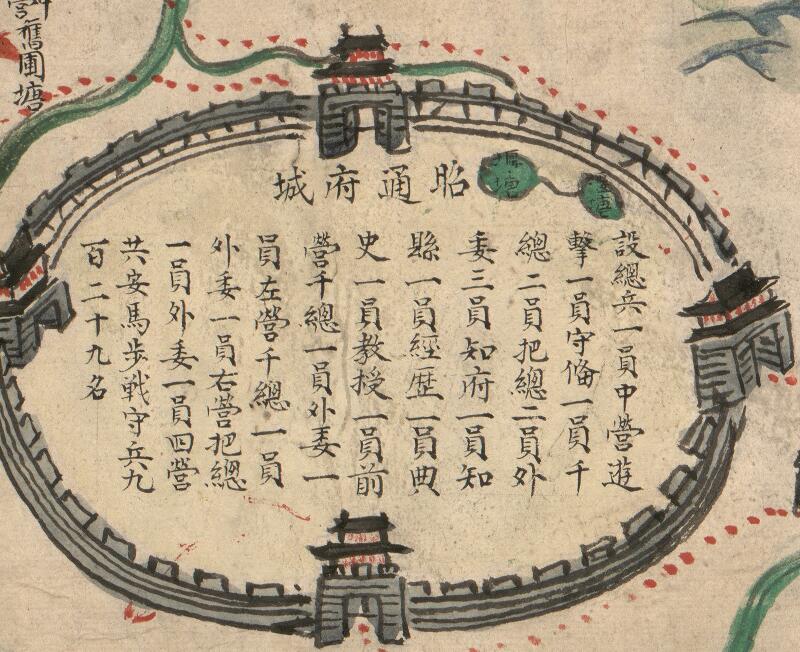 昭通府城
設總兵一員中營遊
擊一員守俻一員千
總二員把總二員外
委三員知府一員知
縣一員經歴一員典
史一員教授一員前
營千總一員外委一
員左營千總一員
外委一員右營把總
一員外委一員四營
共安馬步戦守兵九
百二十九名
營舊圃塘